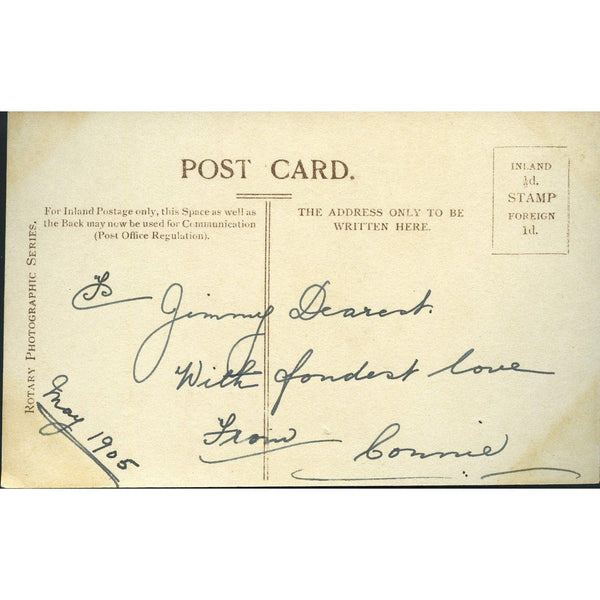 POST CARD.
For Inland Postage only, this Space as well as
the Back may now be used for Communication
(Post Office Regulation).
THE ADDRESS ONLY TO BE
WRITTEN HERE.
INLAND
½d.
STAMP
FOREIGN
1d.
ROTARY PHOTOGRAPHIC SERIES.
To Jimmy Dearest.
With fondest love
From Connie
May 1905